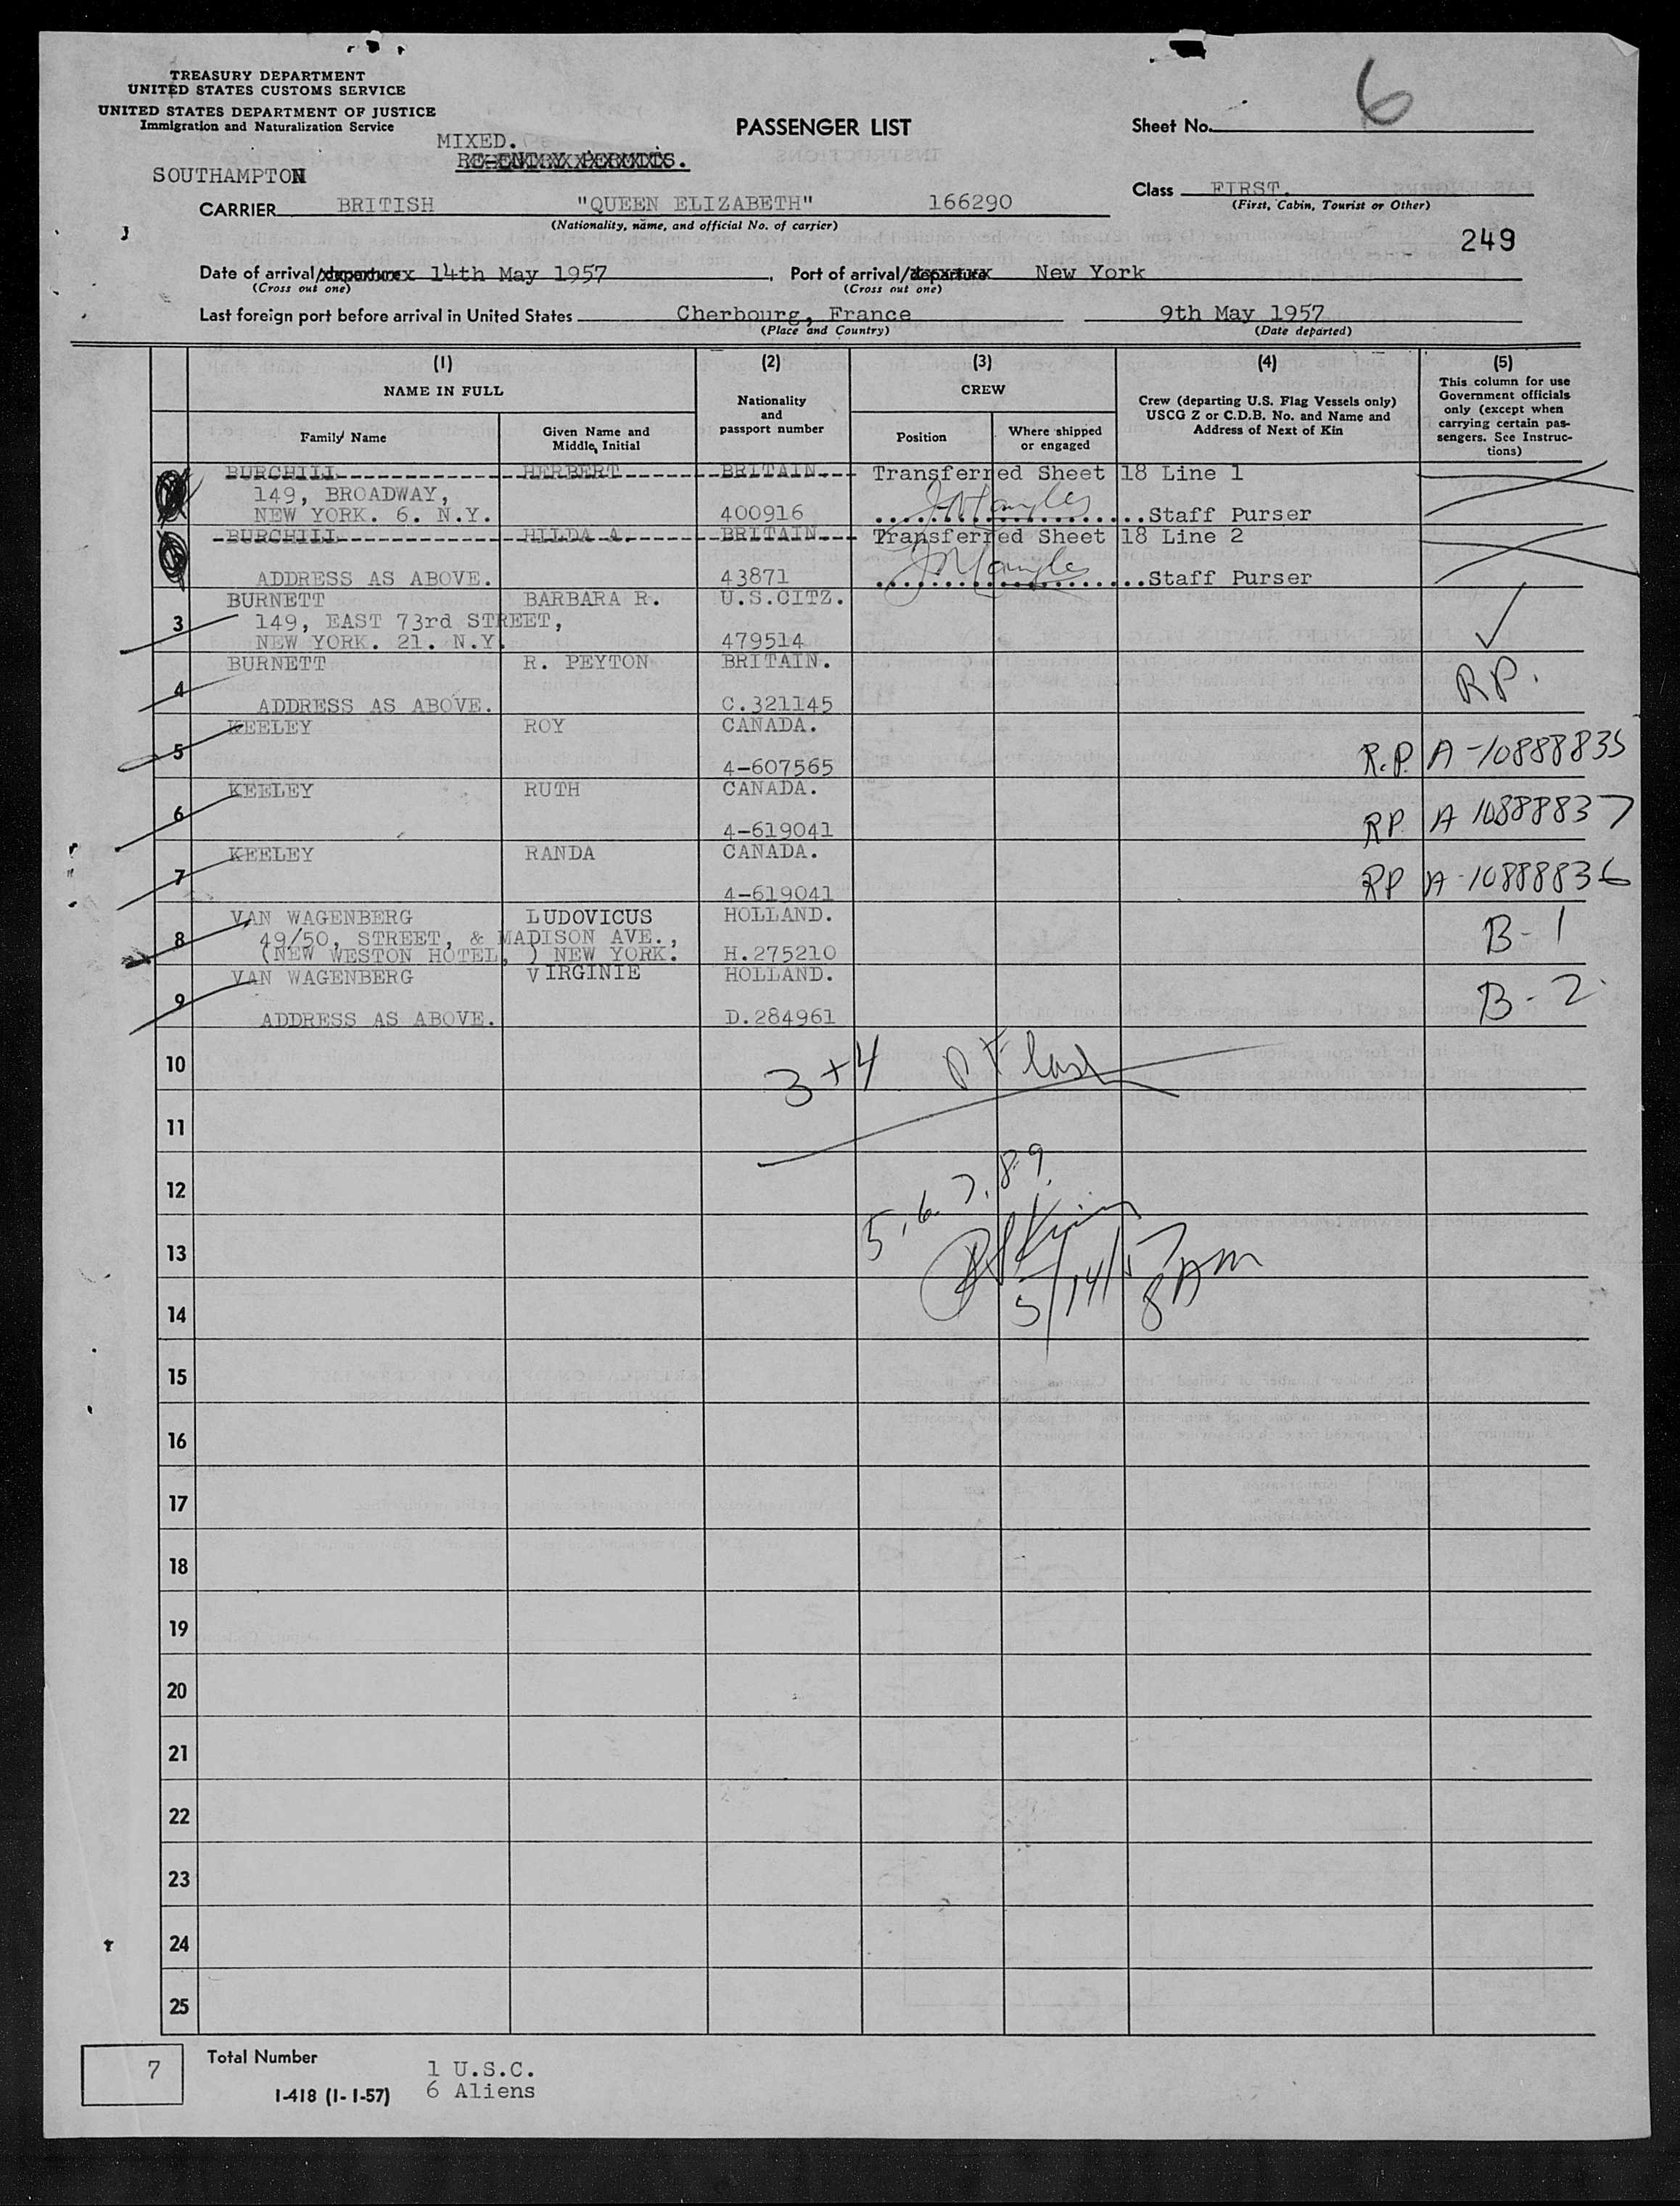 TREASURY DEPARTMENT
UNITED STATES CUSTOMS SERVICE
UNITED STATES DEPARTMENT OF JUSTICE
Immigration and Naturalization Service
PASSENGER LIST
Sheet No. 6
MIXED.
RE-ENTRY PERMITS.
SOUTHAMPTON
Class FIRST.
(First, Cabin, Tourist or Other)
CARRIER BRITISH "QUEEN ELIZABETH" 166290
(Nationality, name, and official No. of carrier)
249
Date of arrival/departure 14th May 1957, Port of arrival/departure New York
(Cross out one) (Cross out one)
Last foreign port before arrival in United States Cherbourg, France 9th May 1957
(Place and Country) (Date departed)
(1) (2) (3) (4) (5)
NAME IN FULL
Family Name
Given Name and Middle Initial
Nationality and passport number
CREW
Position
Where shipped or engaged
Crew (departing U.S. Flag Vessels only) USCG Z or C.D.B. No. and Name and Address of Next of Kin
This column for use Government officials only (except when carrying certain passengers. See Instructions)
BURCHILL HERBERT BRITAIN. Transferred Sheet 18 Line 1
149, BROADWAY,
NEW YORK. 6. N.Y. 400916 ....................Staff Purser
BURCHILL HILDA A. BRITAIN. Transferred Sheet 18 Line 2
ADDRESS AS ABOVE. 43871 ....................Staff Purser
3 BURNETT BARBARA R. U.S.CITZ.
149, EAST 73rd STREET,
NEW YORK. 21. N.Y. 479514
4 BURNETT R. PEYTON BRITAIN. RP.
ADDRESS AS ABOVE. C.321145
5 KEELEY ROY CANADA.
4-607565 R.P. A-10888835
6 KEELEY RUTH CANADA.
4-619041 RP. A 10888837
7 KEELEY RANDA CANADA.
4-619041 RP A-10888836
8 VAN WAGENBERG LUDOVICUS HOLLAND. B-1
49/50, STREET, & MADISON AVE.,
(NEW WESTON HOTEL, ) NEW YORK. H.275210
9 VAN WAGENBERG VIRGINIE HOLLAND. B-2.
ADDRESS AS ABOVE. D.284961
10 3+4
11
12 5, 6. 7. 8.9.
13
14 5/14/57 8 AM
15
16
17
18
19
20
21
22
23
24
25
7 Total Number 1 U.S.C.
I-418 (1-1-57) 6 Aliens